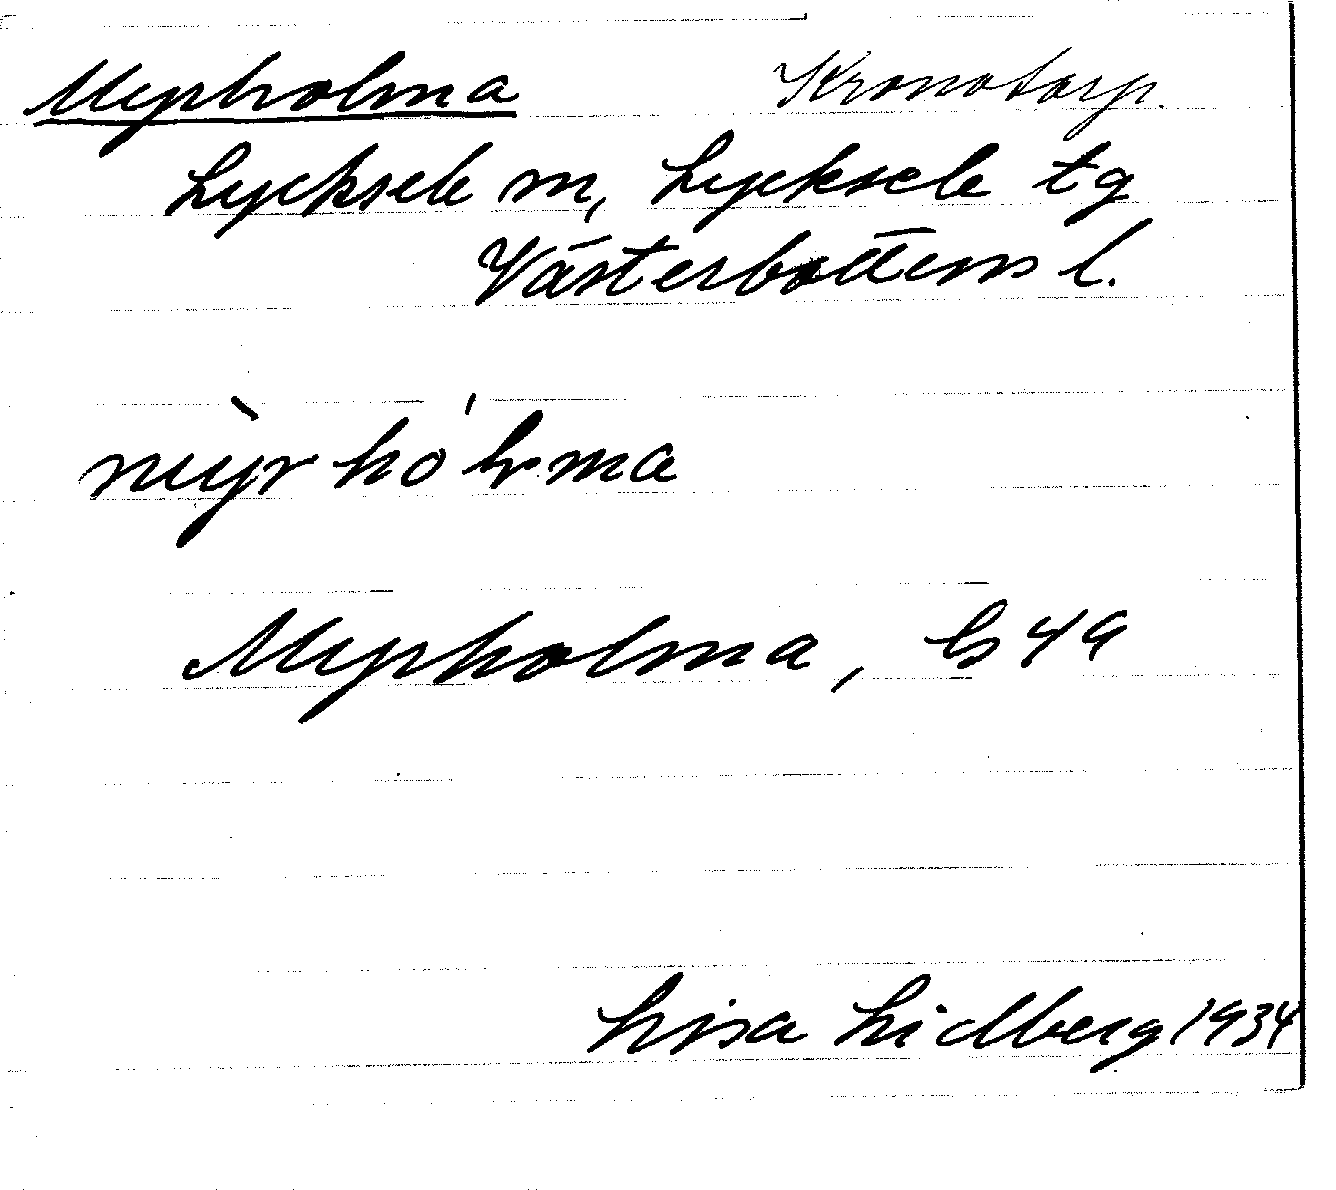 Myrholma Kronotorp.
Lycksele m, Lycksele tg
Västerbottens l.
mỳr hó lma
Myrholma, b 49
Lisa Lidberg 1934